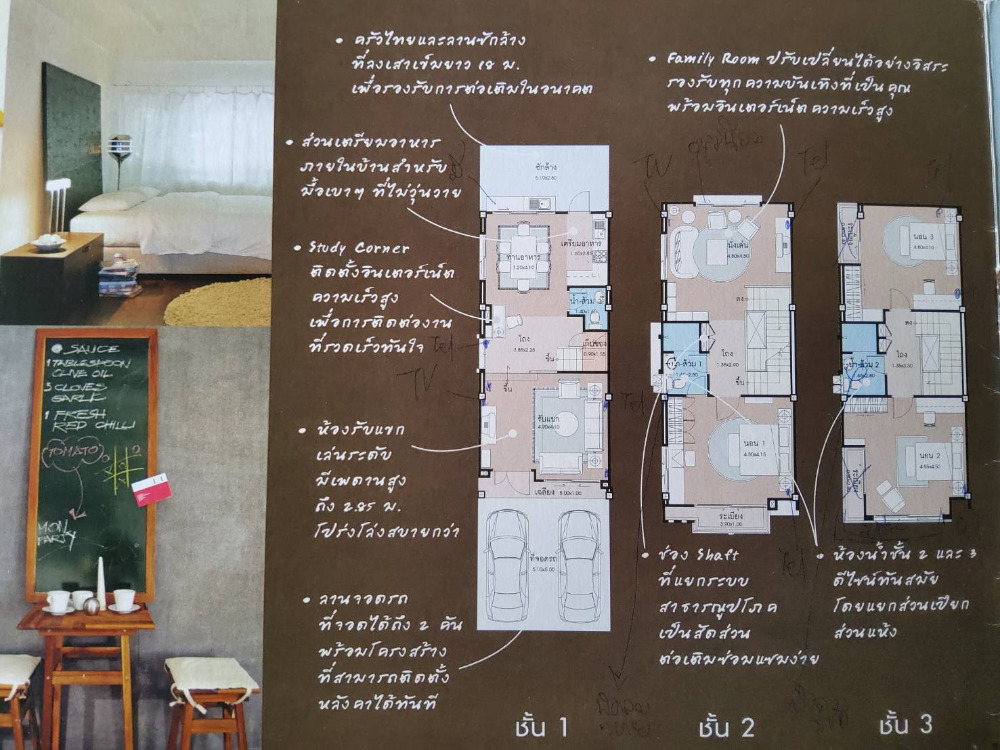 • ครัวไทยและลานซักล้าง
ที่ลงเสาเข็มยาว 18 ม.
เพื่อรองรับการต่อเติมในอนาคต
• Family Room ปรับเปลี่ยนได้อย่างอิสระ
รองรับทุกความบันเทิงที่เป็นคุณ
พร้อมอินเตอร์เน็ตความเร็วสูง
• ส่วนเตรียมอาหาร
ภายในบ้านสำหรับ
มื้อเบาๆ ที่ไม่วุ่นวาย
• Study Corner
ติดตั้งอินเตอร์เน็ต
ความเร็วสูง
เพื่อการติดต่องาน
ที่รวดเร็วทันใจ
• ห้องรับแขก
เล่นระดับ
มีเพดานสูง
ถึง 2.85 ม.
โปร่งโล่งสบายกว่า
• ลานจอดรถ
ที่จอดได้ถึง 2 คัน
พร้อมโครงสร้าง
ที่สามารถติดตั้ง
หลังคาได้ทันที
• ช่อง Shaft
ที่แยกระบบ
สาธารณูปโภค
เป็นสัดส่วน
ต่อเติมซ่อมแซมง่าย
• ห้องน้ำชั้น 2 และ 3
ดีไซน์ทันสมัย
โดยแยกส่วนเปียก
ส่วนแห้ง
ซักล้าง
5.10x2.40
ทานอาหาร
เตรียมอาหาร
น้ำ-ส้วม
โถง
3.85x2.25
เก็บของ
ขึ้น
ขึ้น
รับแขก
เฉลียง 5.00x1.00
ที่จอดรถ
5.10x5.00
ชั้น 1
นั่งเล่น
ลง
น้ำ-ส้วม 1
โถง
ขึ้น
นอน 1
ระเบียง
ชั้น 2
นอน 3
ลง
โถง
น้ำ-ส้วม 2
นอน 2
ชั้น 3
TV
Tel
Tel
TV
Tel
Tel
SAUCE
1 TABLESPOON
OLIVE OIL
3 CLOVES
GARLIC
1 FRESH
RED CHILLI
TOMATO
MON
PARTY